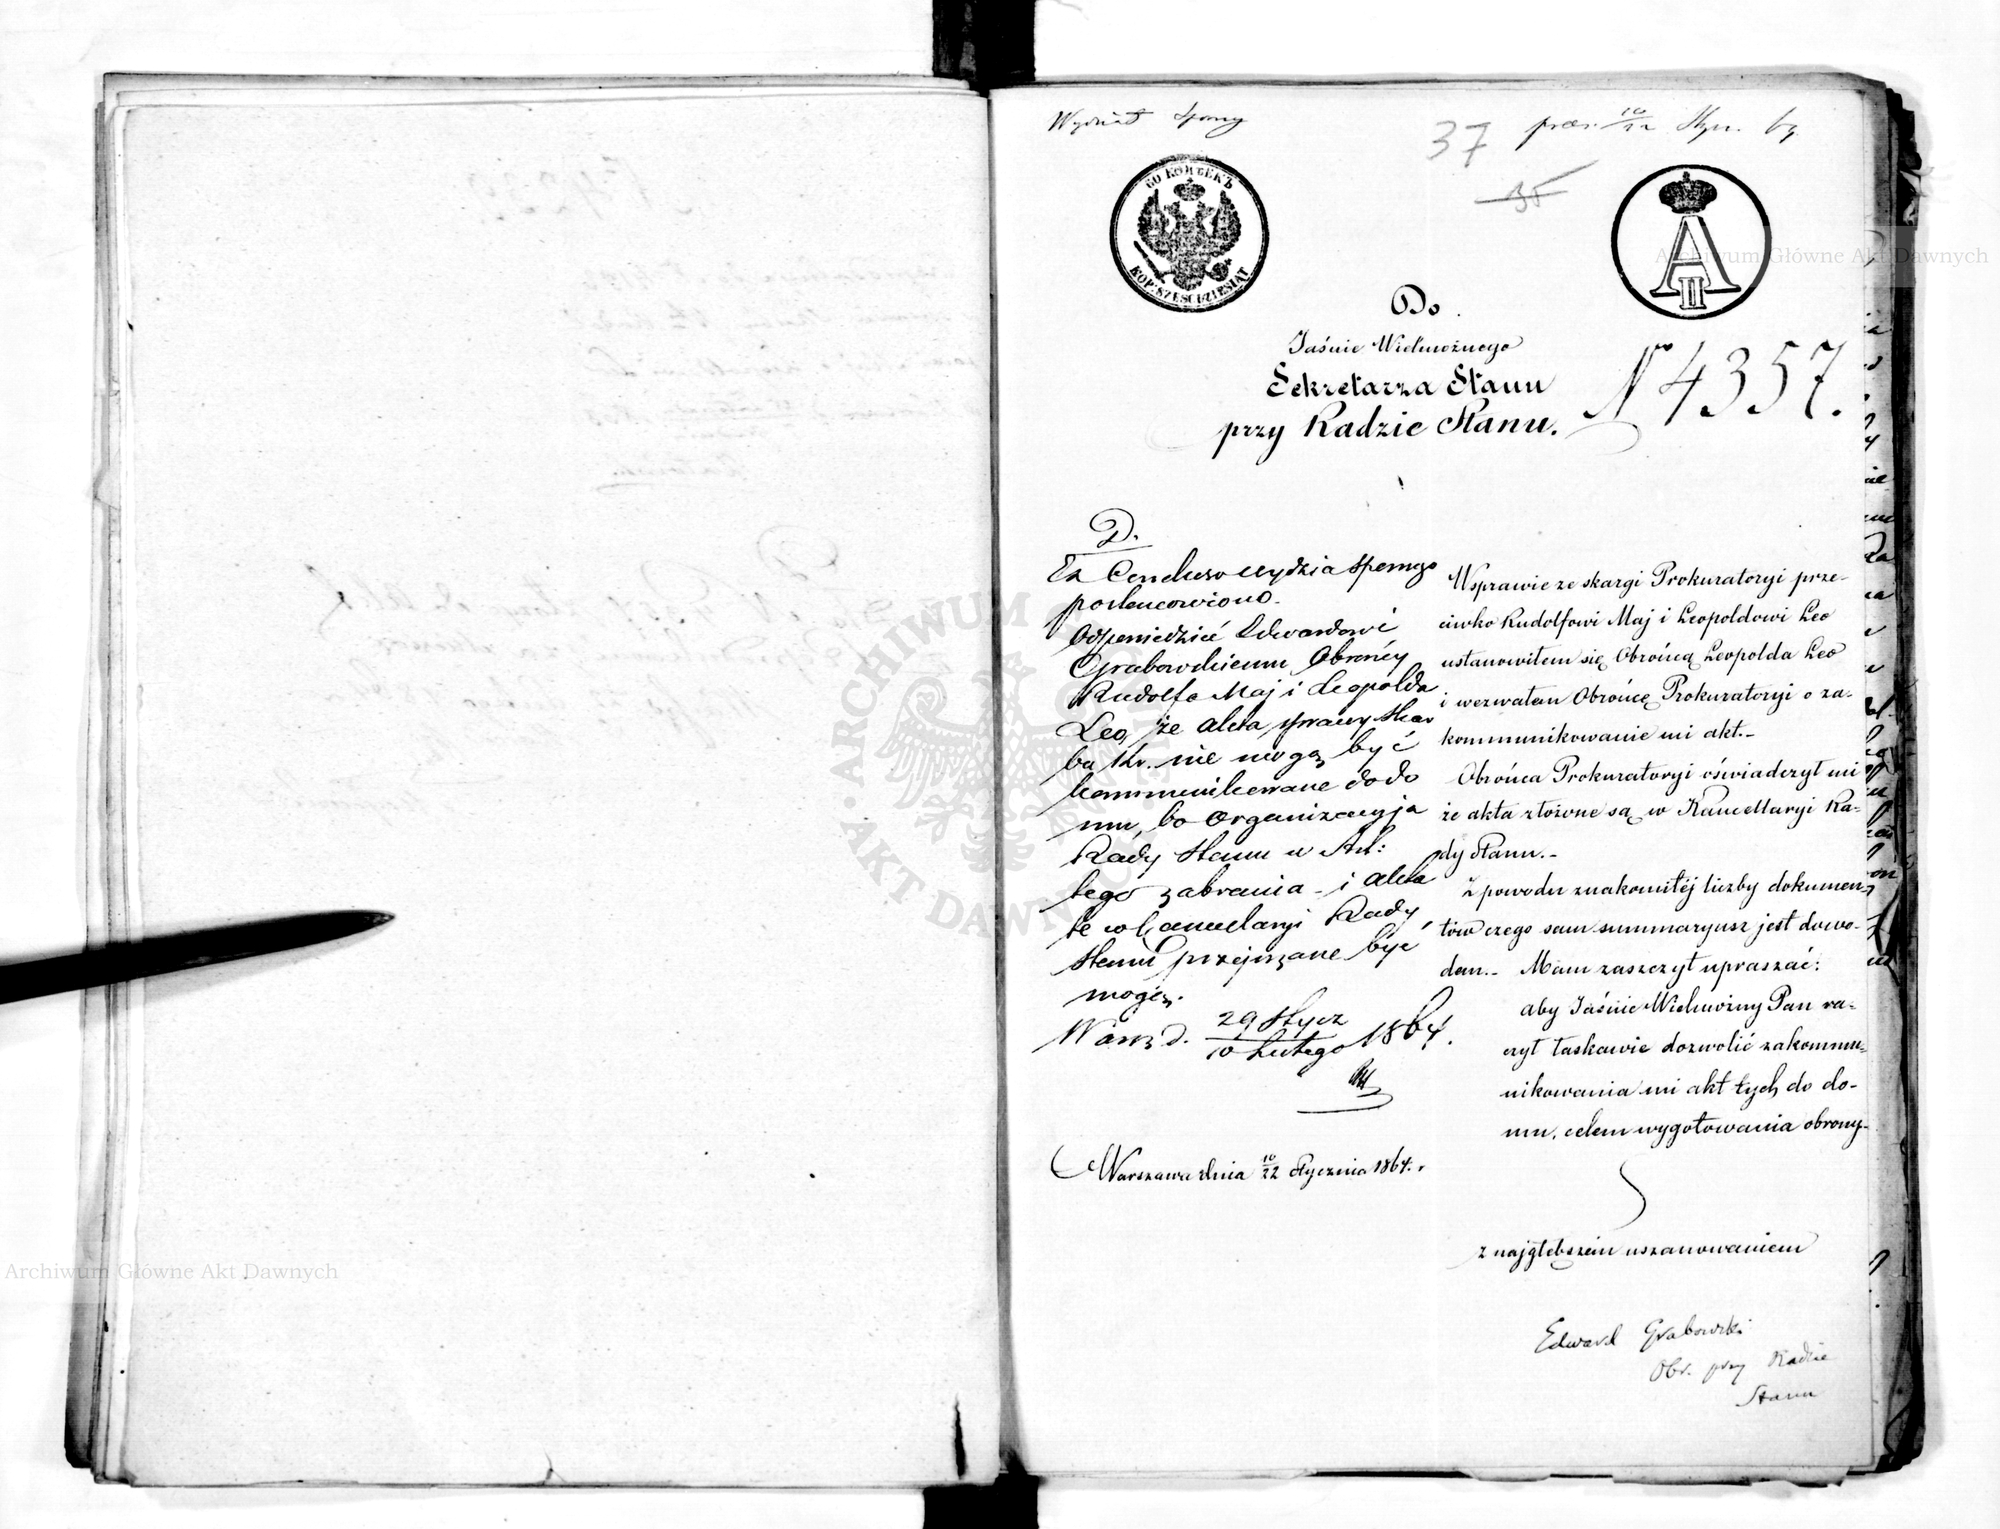 Wydział Sporny
37
prez. 10/22 Stycz. 64
35
60 КОПѢЕКЪ
KOP. SZEŚĆDZIESIĄT
A II
Do
Jaśnie Wielmożnego
Sekretarza Stanu
przy Radzie Stanu.
N 4357.
D.
postanowiono.
Odpowiedzieć Edwardowi
Grabowskiemu Obrońcy
Rudolfa Maj i Leopolda
Leo, że akta sprawy Skar
bu Kr. nie mogą być
kommunikowane do do
mu, bo Organizacyja
Rady Stanu w Art:
tego zabrania - i akta
te w Kancelaryi Rady
Stanu przejrzane być
mogą.
Warsz. d. 29 Stycz / 10 Lutego 1864.
Warszawa dnia 10/22 Stycznia 1864. r
W sprawie ze skargi Prokuratoryi prze-
ciwko Rudolfowi Maj i Leopoldowi Leo
ustanowiłem się Obrońcą Leopolda Leo
i wezwałem Obrońcę Prokuratoryi o za-
kommunikowanie mi akt.-
Obrońca Prokuratoryi oświadczył mi
że akta złożone są w Kancellaryi Ra-
dy Stanu.-
Z powodu znakomitéj liczby dokumen-
tów czego sam summaryusz jest dowo-
dem.- Mam zaszczyt upraszać:
aby Jaśnie Wielmożny Pan ra-
czył łaskawie dozwolić zakommu-
nikowania mi akt tych do do-
mu, celem wygotowania obrony-
z najgłębszém uszanowaniem
Edward Grabowski
Obr. przy Radzie
Stanu
Archiwum Główne Akt Dawnych
Archiwum Główne Akt Dawnych
ARCHIWUM GŁÓWNE AKT DAWNYCH